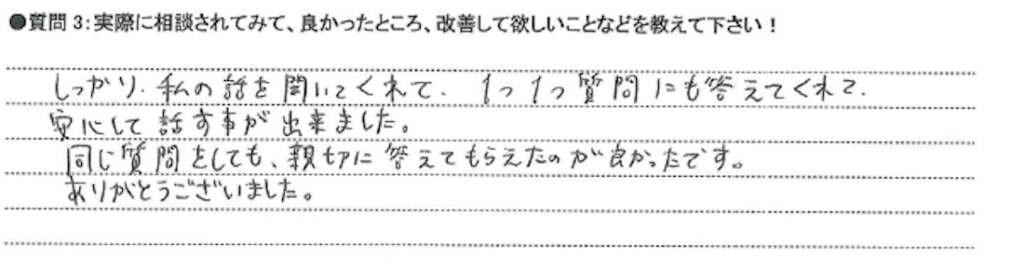 ●質問3:実際に相談されてみて、良かったところ、改善して欲しいことなどを教えて下さい!
しっかり、私の話を聞いてくれて、1つ1つ質問にも答えてくれて、
安心して話す事が出来ました。
同じ質問をしても、親切に答えてもらえたのが良かったです。
ありがとうございました。